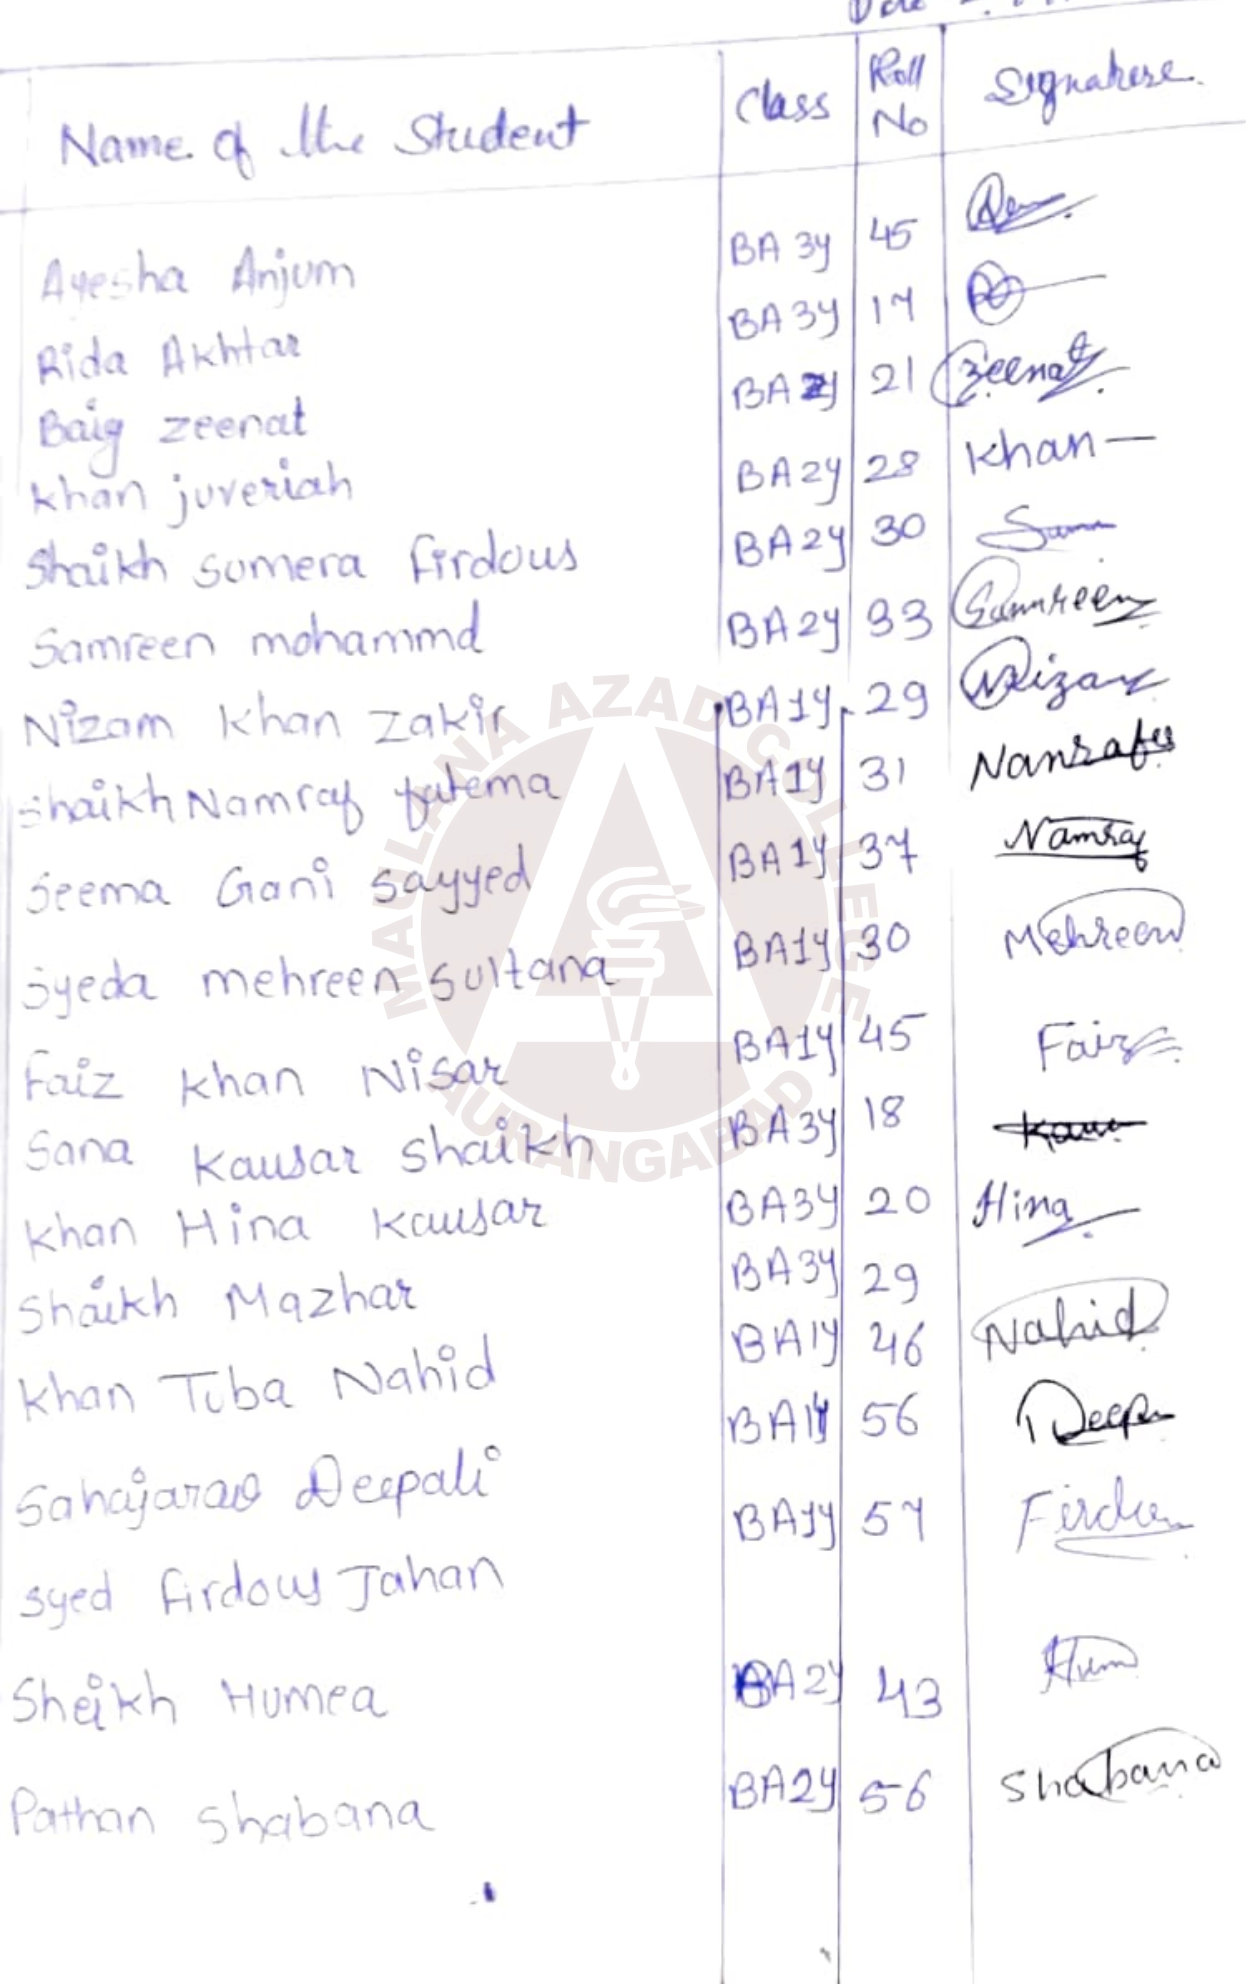 Date
Name of the Student Class Roll No Signature
Ayesha Anjum BA 3y 45
Rida Akhtar BA 3y 17
Baig zeenat BA 2y 21 Zeenat
Khan juveriah BA 2y 28 Khan
Shaikh sumera firdous BA 2y 30
Samreen mohammd BA 2y 33 Samreen
Nizam Khan Zakir BA 1y 29 Nizam
Shaikh Namraf fatema BA 1y 31
Seema Gani Sayyed BA 1y 37 Namraf
Syeda mehreen Sultana BA 1y 30 Mehreen
Faiz Khan Nisar BA 1y 45 Faiz
Sana Kausar Shaikh BA 3y 18
Khan Hina Kausar BA 3y 20 Hina
Shaikh Mazhar BA 3y 29
Khan Tuba Nahid BA 1y 46 Nahid
Sahajarao Deepali BA 1y 56
Syed firdous Jahan BA 1y 57
Sheikh Humea BA 2y 43
Pathan Shabana BA 2y 56 Shabana
MAULANA AZAD COLLEGE
AURANGABAD